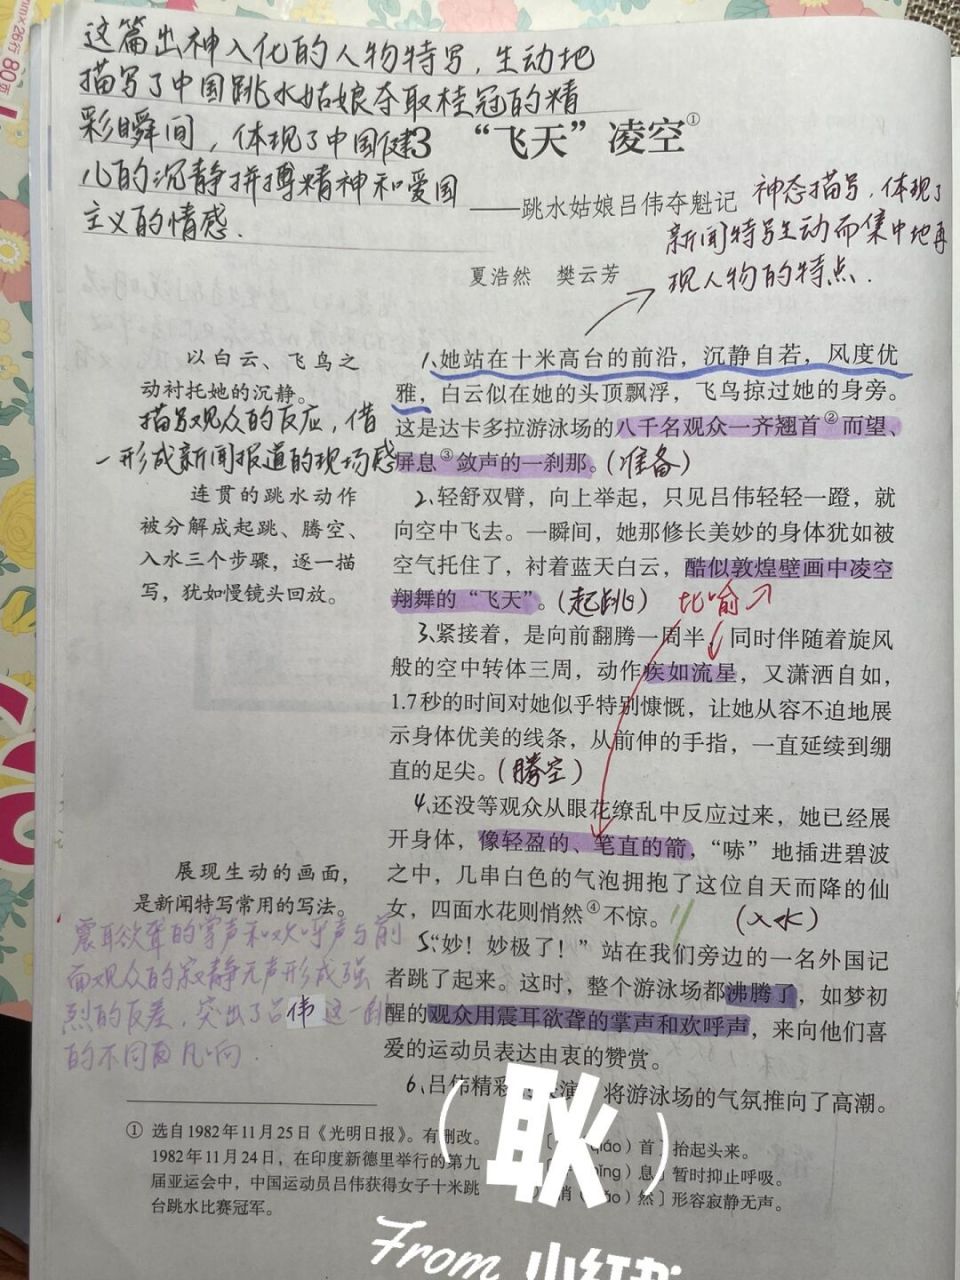 这篇出神入化的人物特写，生动地
描写了中国跳水姑娘夺取桂冠的精
彩瞬间，体现了中国健
儿的沉静拼搏精神和爱国
主义的情感．
3 “飞天”凌空①
——跳水姑娘吕伟夺魁记
夏浩然 樊云芳
神态描写，体现了
新闻特写生动而集中地再
现人物的特点．
以白云、飞鸟之
动衬托她的沉静。
描写观众的反应，借
一形成新闻报道的现场感
连贯的跳水动作
被分解成起跳、腾空、
入水三个步骤，逐一描
写，犹如慢镜头回放。
展现生动的画面，
是新闻特写常用的写法。
震耳欲聋的掌声和欢呼声与前
面观众的寂静无声形成强
烈的反差，突出了吕伟这一跳
的不同凡响．
1、她站在十米高台的前沿，沉静自若，风度优
雅，白云似在她的头顶飘浮，飞鸟掠过她的身旁。
这是达卡多拉游泳场的八千名观众一齐翘首②而望、
屏息③敛声的一刹那。（准备）
2、轻舒双臂，向上举起，只见吕伟轻轻一蹬，就
向空中飞去。一瞬间，她那修长美妙的身体犹如被
空气托住了，衬着蓝天白云，酷似敦煌壁画中凌空
翔舞的“飞天”。（起跳） 比喻
3、紧接着，是向前翻腾一周半，同时伴随着旋风
般的空中转体三周，动作疾如流星，又潇洒自如，
1.7秒的时间对她似乎特别慷慨，让她从容不迫地展
示身体优美的线条，从前伸的手指，一直延续到绷
直的足尖。（腾空）
4、还没等观众从眼花缭乱中反应过来，她已经展
开身体，像轻盈的、笔直的箭，“哧”地插进碧波
之中，几串白色的气泡拥抱了这位自天而降的仙
女，四面水花则悄然④不惊。（入水）
5、“妙！妙极了！”站在我们旁边的一名外国记
者跳了起来。这时，整个游泳场都沸腾了，如梦初
醒的观众用震耳欲聋的掌声和欢呼声，来向他们喜
爱的运动员表达由衷的赞赏。
6、吕伟精彩 演 将游泳场的气氛推向了高潮。
① 选自1982年11月25日《光明日报》。有删改。
1982年11月24日，在印度新德里举行的第九
届亚运会中，中国运动员吕伟获得女子十米跳
台跳水比赛冠军。
首〕抬起头来。
息〕暂时抑止呼吸。
然〕形容寂静无声。
（耿）
From 小红书